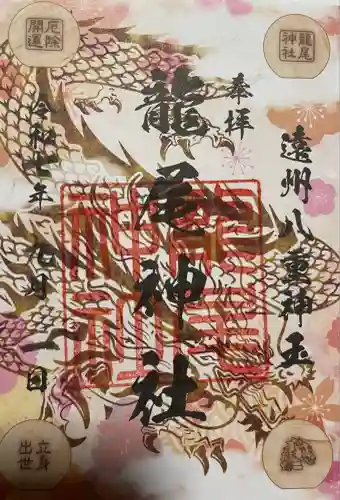 厄除
開運
龍尾
神社
遠州八重神玉
奉拝
龍尾神社
龍尾
神社
令和七年 九月 一日
立身
出世